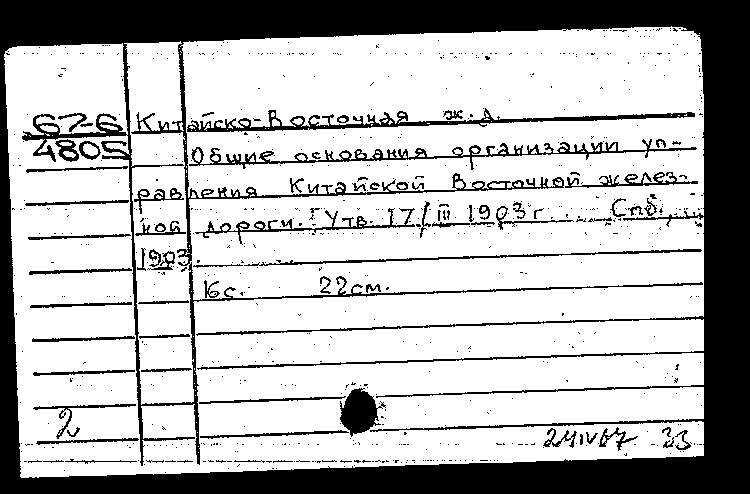 67-6 Китайско-Восточная ж.д.
4805 Общие основания организации уп-
равления Китайской Восточной желез-
ной дороги. Утв. 17/III 1903 г. Спб.,
1903.
16с. 22см.
2
33